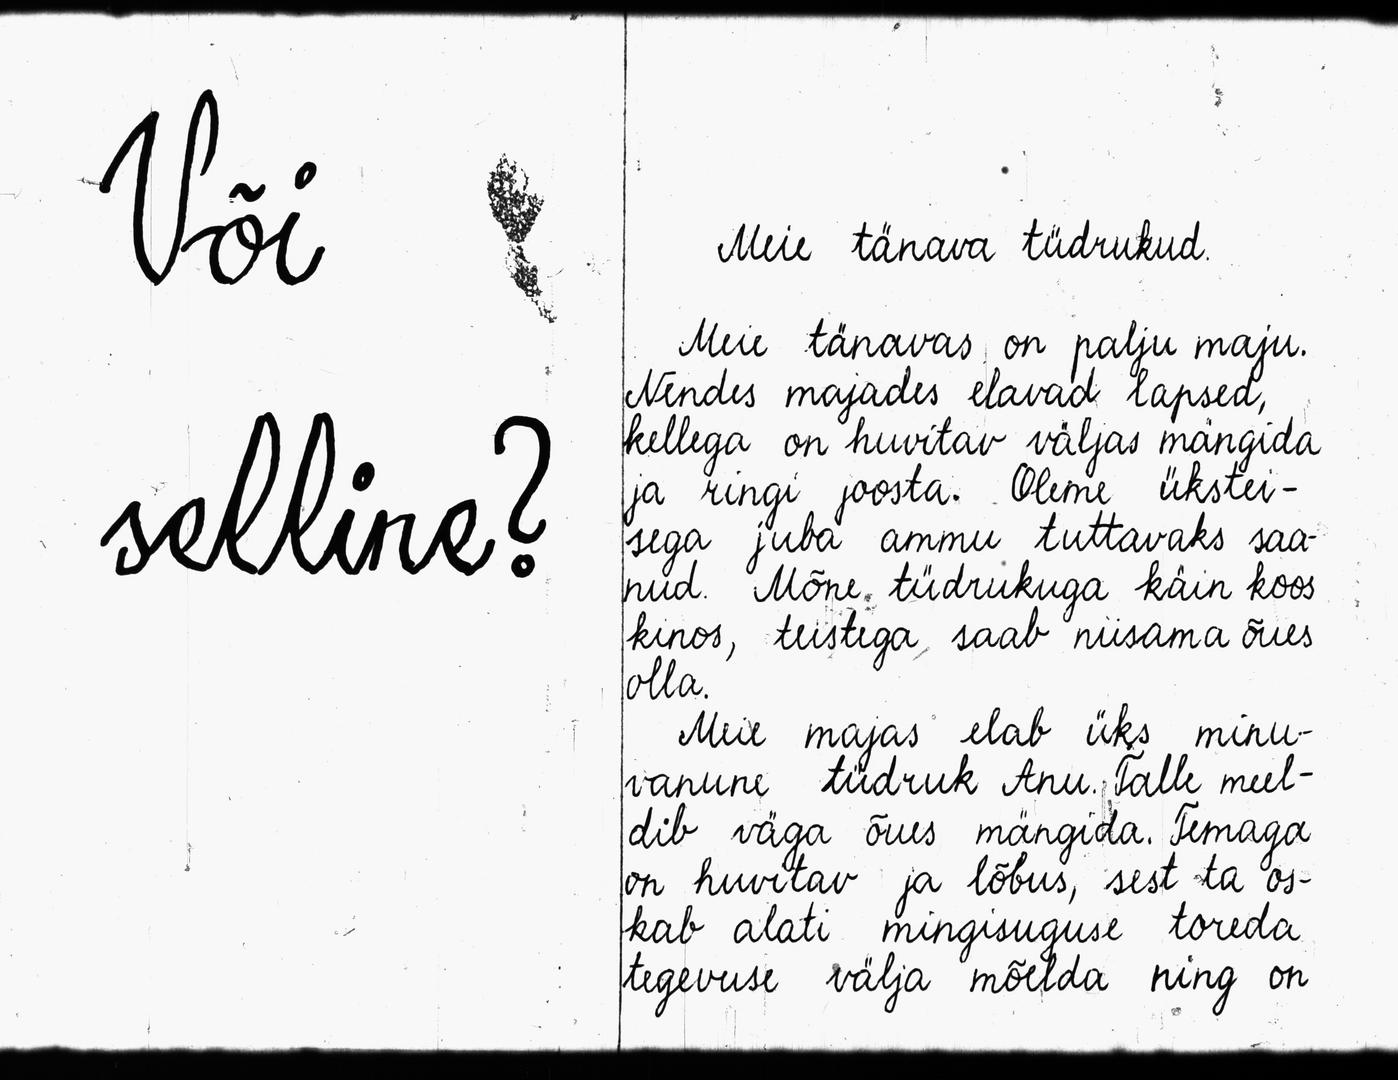 Või
selline?
Meie tänava tüdrukud.
Meie tänavas on palju maju.
Nendes majades elavad lapsed,
kellega on huvitav väljas mängida
ja ringi joosta. Oleme ükstei-
sega juba ammu tuttavaks saa-
nud. Mõne tüdrukuga käin koos
kinos, teistega saab niisama õues
olla.
Meie majas elab üks minu-
vanune tüdruk Anu. Talle meel-
dib väga õues mängida. Temaga
on huvitav ja lõbus, sest ta os-
kab alati mingisuguse toreda
tegevuse välja mõelda ning on